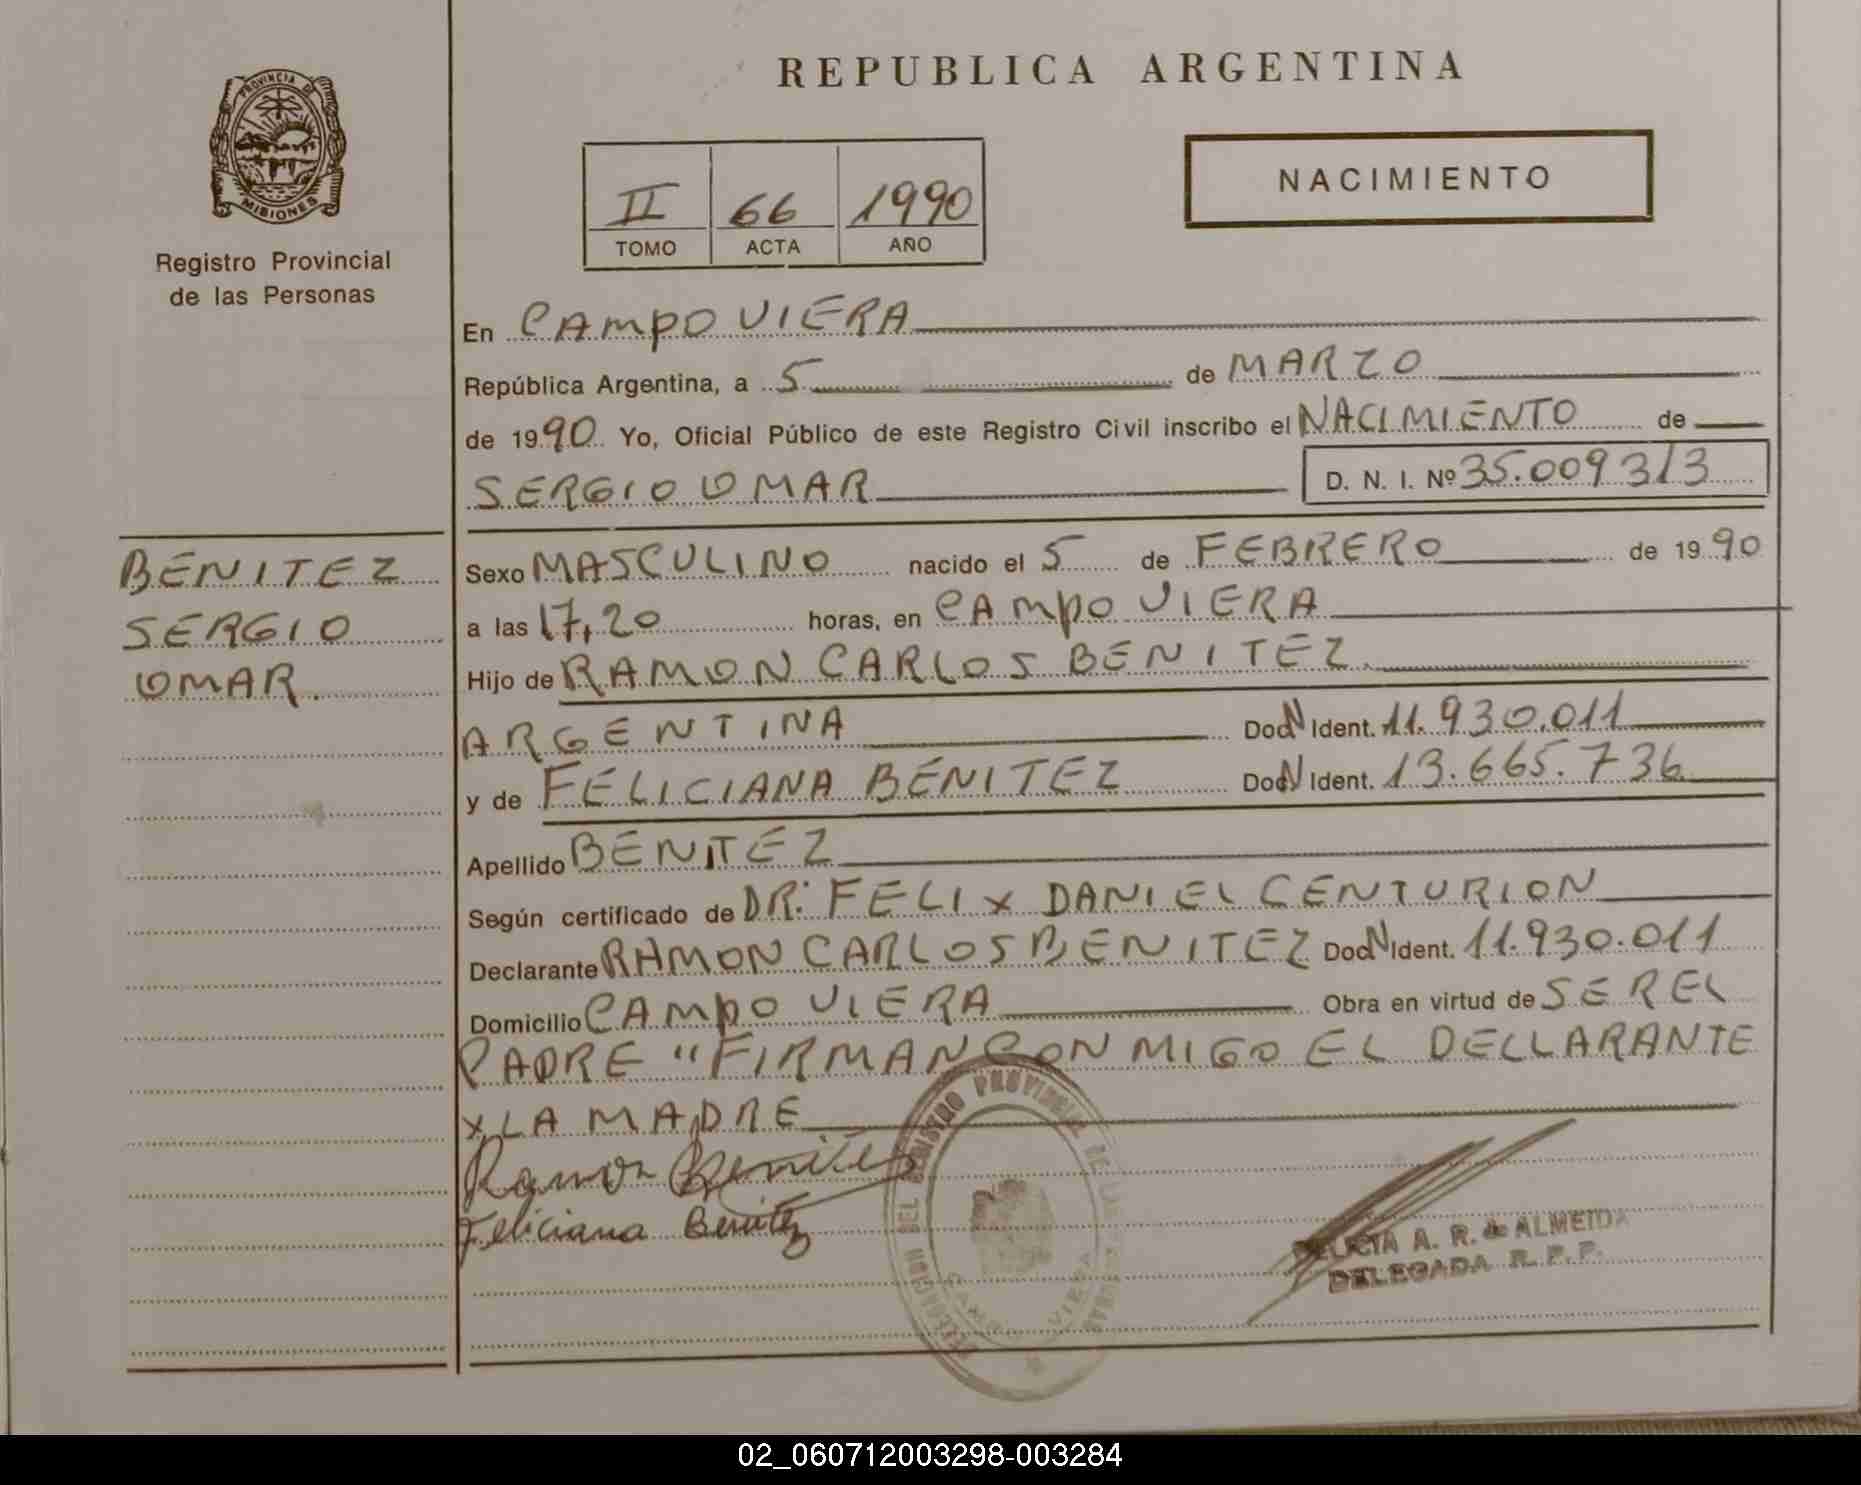 PROVINCIA DE
MISIONES
Registro Provincial
de las Personas
REPUBLICA ARGENTINA
II 66 1990
TOMO ACTA AÑO
NACIMIENTO
En CAMPO VIERA
República Argentina, a 5 de MARZO
de 1990 Yo, Oficial Público de este Registro Civil inscribo el NACIMIENTO de
SERGIO OMAR D. N. I. Nº 35.009313
BENITEZ
SERGIO
OMAR.
Sexo MASCULINO nacido el 5 de FEBRERO de 1990
a las 17,20 horas, en CAMPO VIERA
Hijo de RAMON CARLOS BENITEZ
ARGENTINA Doc N Ident. 11.930.011
y de FELICIANA BENITEZ Doc N Ident. 13.665.736
Apellido BENITEZ
Según certificado de DR: FELIX DANIEL CENTURION
Declarante RAMON CARLOS BENITEZ Doc N Ident. 11.930.011
Domicilio CAMPO VIERA Obra en virtud de SER EL
PADRE "FIRMAN CONMIGO EL DECLARANTE
X LA MADRE
Ramon Benites
Feliciana Benitez
DELEGACION DEL REGISTRO PROVINCIAL DE LAS PERSONAS
CAMPO VIERA
FELICIA A. R. de ALMEIDA
DELEGADA R. P. P.
02_060712003298-003284